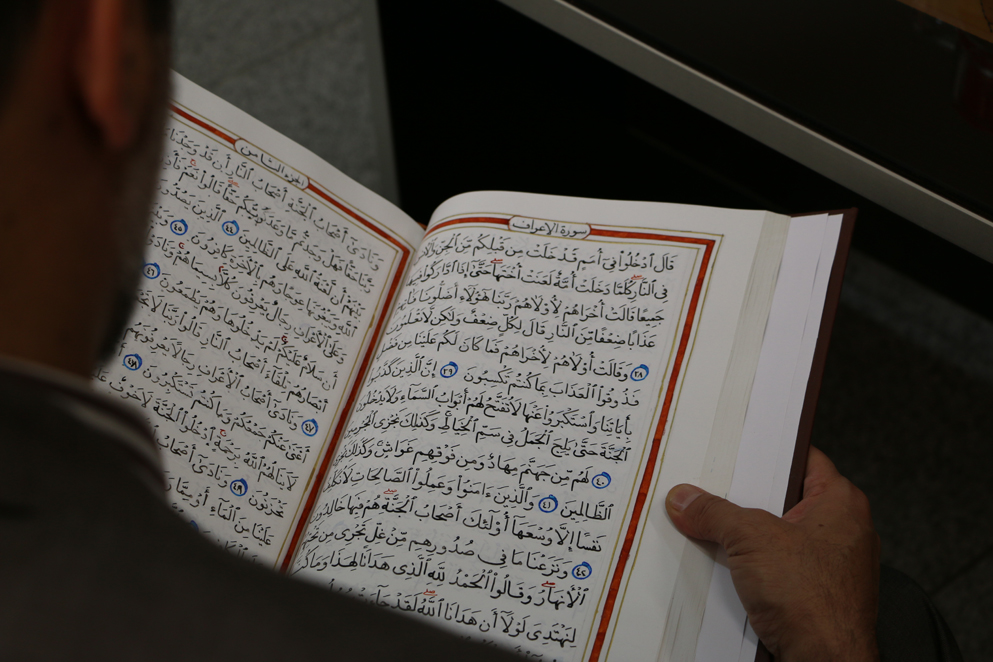 سورة الأعراف
قَالَ ٱدْخُلُوا۟ فِىٓ أُمَمٍ قَدْ خَلَتْ مِن قَبْلِكُم مِّنَ ٱلْجِنِّ وَٱلْإِنسِ
فِى ٱلنَّارِ كُلَّمَا دَخَلَتْ أُمَّةٌ لَّعَنَتْ أُخْتَهَا حَتَّىٰٓ إِذَا ٱدَّارَكُوا۟ فِيهَا
جَمِيعًا قَالَتْ أُخْرَاهُمْ لِأُولَاهُمْ رَبَّنَا هَٰٓؤُلَآءِ أَضَلُّونَا فَـَٔاتِهِمْ
عَذَابًا ضِعْفًا مِّنَ ٱلنَّارِ قَالَ لِكُلٍّ ضِعْفٌ وَلَٰكِن لَّا تَعْلَمُونَ
٣٨ وَقَالَتْ أُولَاهُمْ لِأُخْرَاهُمْ فَمَا كَانَ لَكُمْ عَلَيْنَا مِن فَضْلٍ
فَذُوقُوا۟ ٱلْعَذَابَ بِمَا كُنتُمْ تَكْسِبُونَ ٣٩ إِنَّ ٱلَّذِينَ كَذَّبُوا۟
بِـَٔايَاتِنَا وَٱسْتَكْبَرُوا۟ عَنْهَا لَا تُفَتَّحُ لَهُمْ أَبْوَابُ ٱلسَّمَآءِ وَلَا يَدْخُلُونَ
ٱلْجَنَّةَ حَتَّىٰ يَلِجَ ٱلْجَمَلُ فِى سَمِّ ٱلْخِيَاطِ وَكَذَٰلِكَ نَجْزِى ٱلْمُجْرِمِينَ
٤٠ لَهُم مِّن جَهَنَّمَ مِهَادٌ وَمِن فَوْقِهِمْ غَوَاشٍ وَكَذَٰلِكَ نَجْزِى
ٱلظَّالِمِينَ ٤١ وَٱلَّذِينَ ءَامَنُوا۟ وَعَمِلُوا۟ ٱلصَّالِحَاتِ لَا نُكَلِّفُ
نَفْسًا إِلَّا وُسْعَهَآ أُو۟لَٰٓئِكَ أَصْحَابُ ٱلْجَنَّةِ هُمْ فِيهَا خَالِدُونَ
٤٢ وَنَزَعْنَا مَا فِى صُدُورِهِم مِّنْ غِلٍّ تَجْرِى مِن تَحْتِهِمُ
ٱلْأَنْهَارُ وَقَالُوا۟ ٱلْحَمْدُ لِلَّهِ ٱلَّذِى هَدَانَا لِهَٰذَا وَمَا كُنَّا
لِنَهْتَدِىَ لَوْلَآ أَنْ هَدَانَا ٱللَّهُ لَقَدْ جَآءَتْ رُسُلُ
الجزء الثامن
وَنَادَىٰٓ أَصْحَابُ ٱلْجَنَّةِ أَصْحَابَ ٱلنَّارِ أَن قَدْ وَجَدْنَا
رَبُّنَا حَقًّا فَهَلْ وَجَدتُّم مَّا وَعَدَ رَبُّكُمْ حَقًّا قَالُوا۟ نَعَمْ فَأَذَّنَ
بَيْنَهُمْ أَن لَّعْنَةُ ٱللَّهِ عَلَى ٱلظَّالِمِينَ ٤٤ ٱلَّذِينَ يَصُدُّونَ
ٱللَّهِ وَيَبْغُونَهَا عِوَجًا وَهُم بِٱلْـَٔاخِرَةِ كَافِرُونَ ٤٥
وَعَلَى ٱلْأَعْرَافِ رِجَالٌ يَعْرِفُونَ كُلًّا بِسِيمَاهُمْ وَنَادَوْا۟
أَن سَلَامٌ عَلَيْكُمْ لَمْ يَدْخُلُوهَا وَهُمْ يَطْمَعُونَ ٤٦
أَبْصَارُهُمْ تِلْقَآءَ أَصْحَابِ ٱلنَّارِ قَالُوا۟ رَبَّنَا لَا تَجْعَلْنَا
٤٧ وَنَادَىٰٓ أَصْحَابُ ٱلْأَعْرَافِ رِجَالًا يَعْرِفُونَهُم
أَغْنَىٰ عَنكُمْ جَمْعُكُمْ وَمَا كُنتُمْ تَسْتَكْبِرُونَ ٤٨
لَا يَنَالُهُمُ ٱللَّهُ بِرَحْمَةٍ ٱدْخُلُوا۟ ٱلْجَنَّةَ لَا خَوْفٌ
تَحْزَنُونَ ٤٩ وَنَادَىٰٓ أَصْحَابُ
عَلَيْنَا مِنَ ٱلْمَآءِ أَوْ مِمَّا